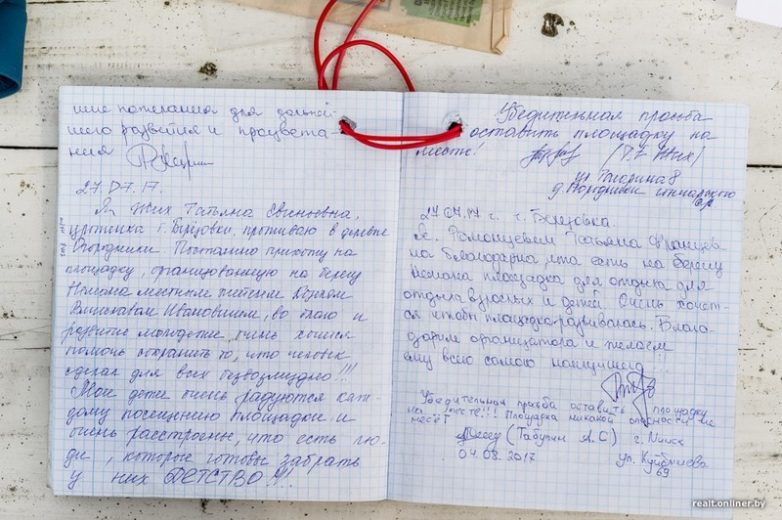 шие пожелания для дальней-
шего развития и процвета-
ния
27.07.17.
Я Жих Татьяна Евгеньевна,
уроженка г. Берёзовки, проживаю в деревне
Огородники. Постоянно прихожу на
площадку, организованную на берегу
Немана местным жителем
Ивановичем, во благо и
развитие молодёжи, очень хотим
помочь сохранить то, что человек
сделал для всех безвозмездно!!!
Мои дети очень радуются каж-
дому посещению площадки и
очень расстроены, что есть лю-
ди, которые готовы забрать
у них ДЕТСТВО!!!
Убедительная просьба
оставить площадку на
месте! (Т.Е Жих)
ул
д.
27.07.17 г. г. Берёзовка.
Я, Татьяна Францев-
на благодарна что есть на берегу
Немана площадка для отдыха для
отдыха взрослых и детей. Очень хочет-
ся чтобы площадка развивалась. Благо-
дарим организатора и желаем
ему всего самого наилучшего...
Убедительная просьба оставить площадку
на месте!!! Площадка никакой опасности не
несёт
(Табулин А.С) г. Минск
04.08.2017 ул. Куйбышева
69
realt.onliner.by